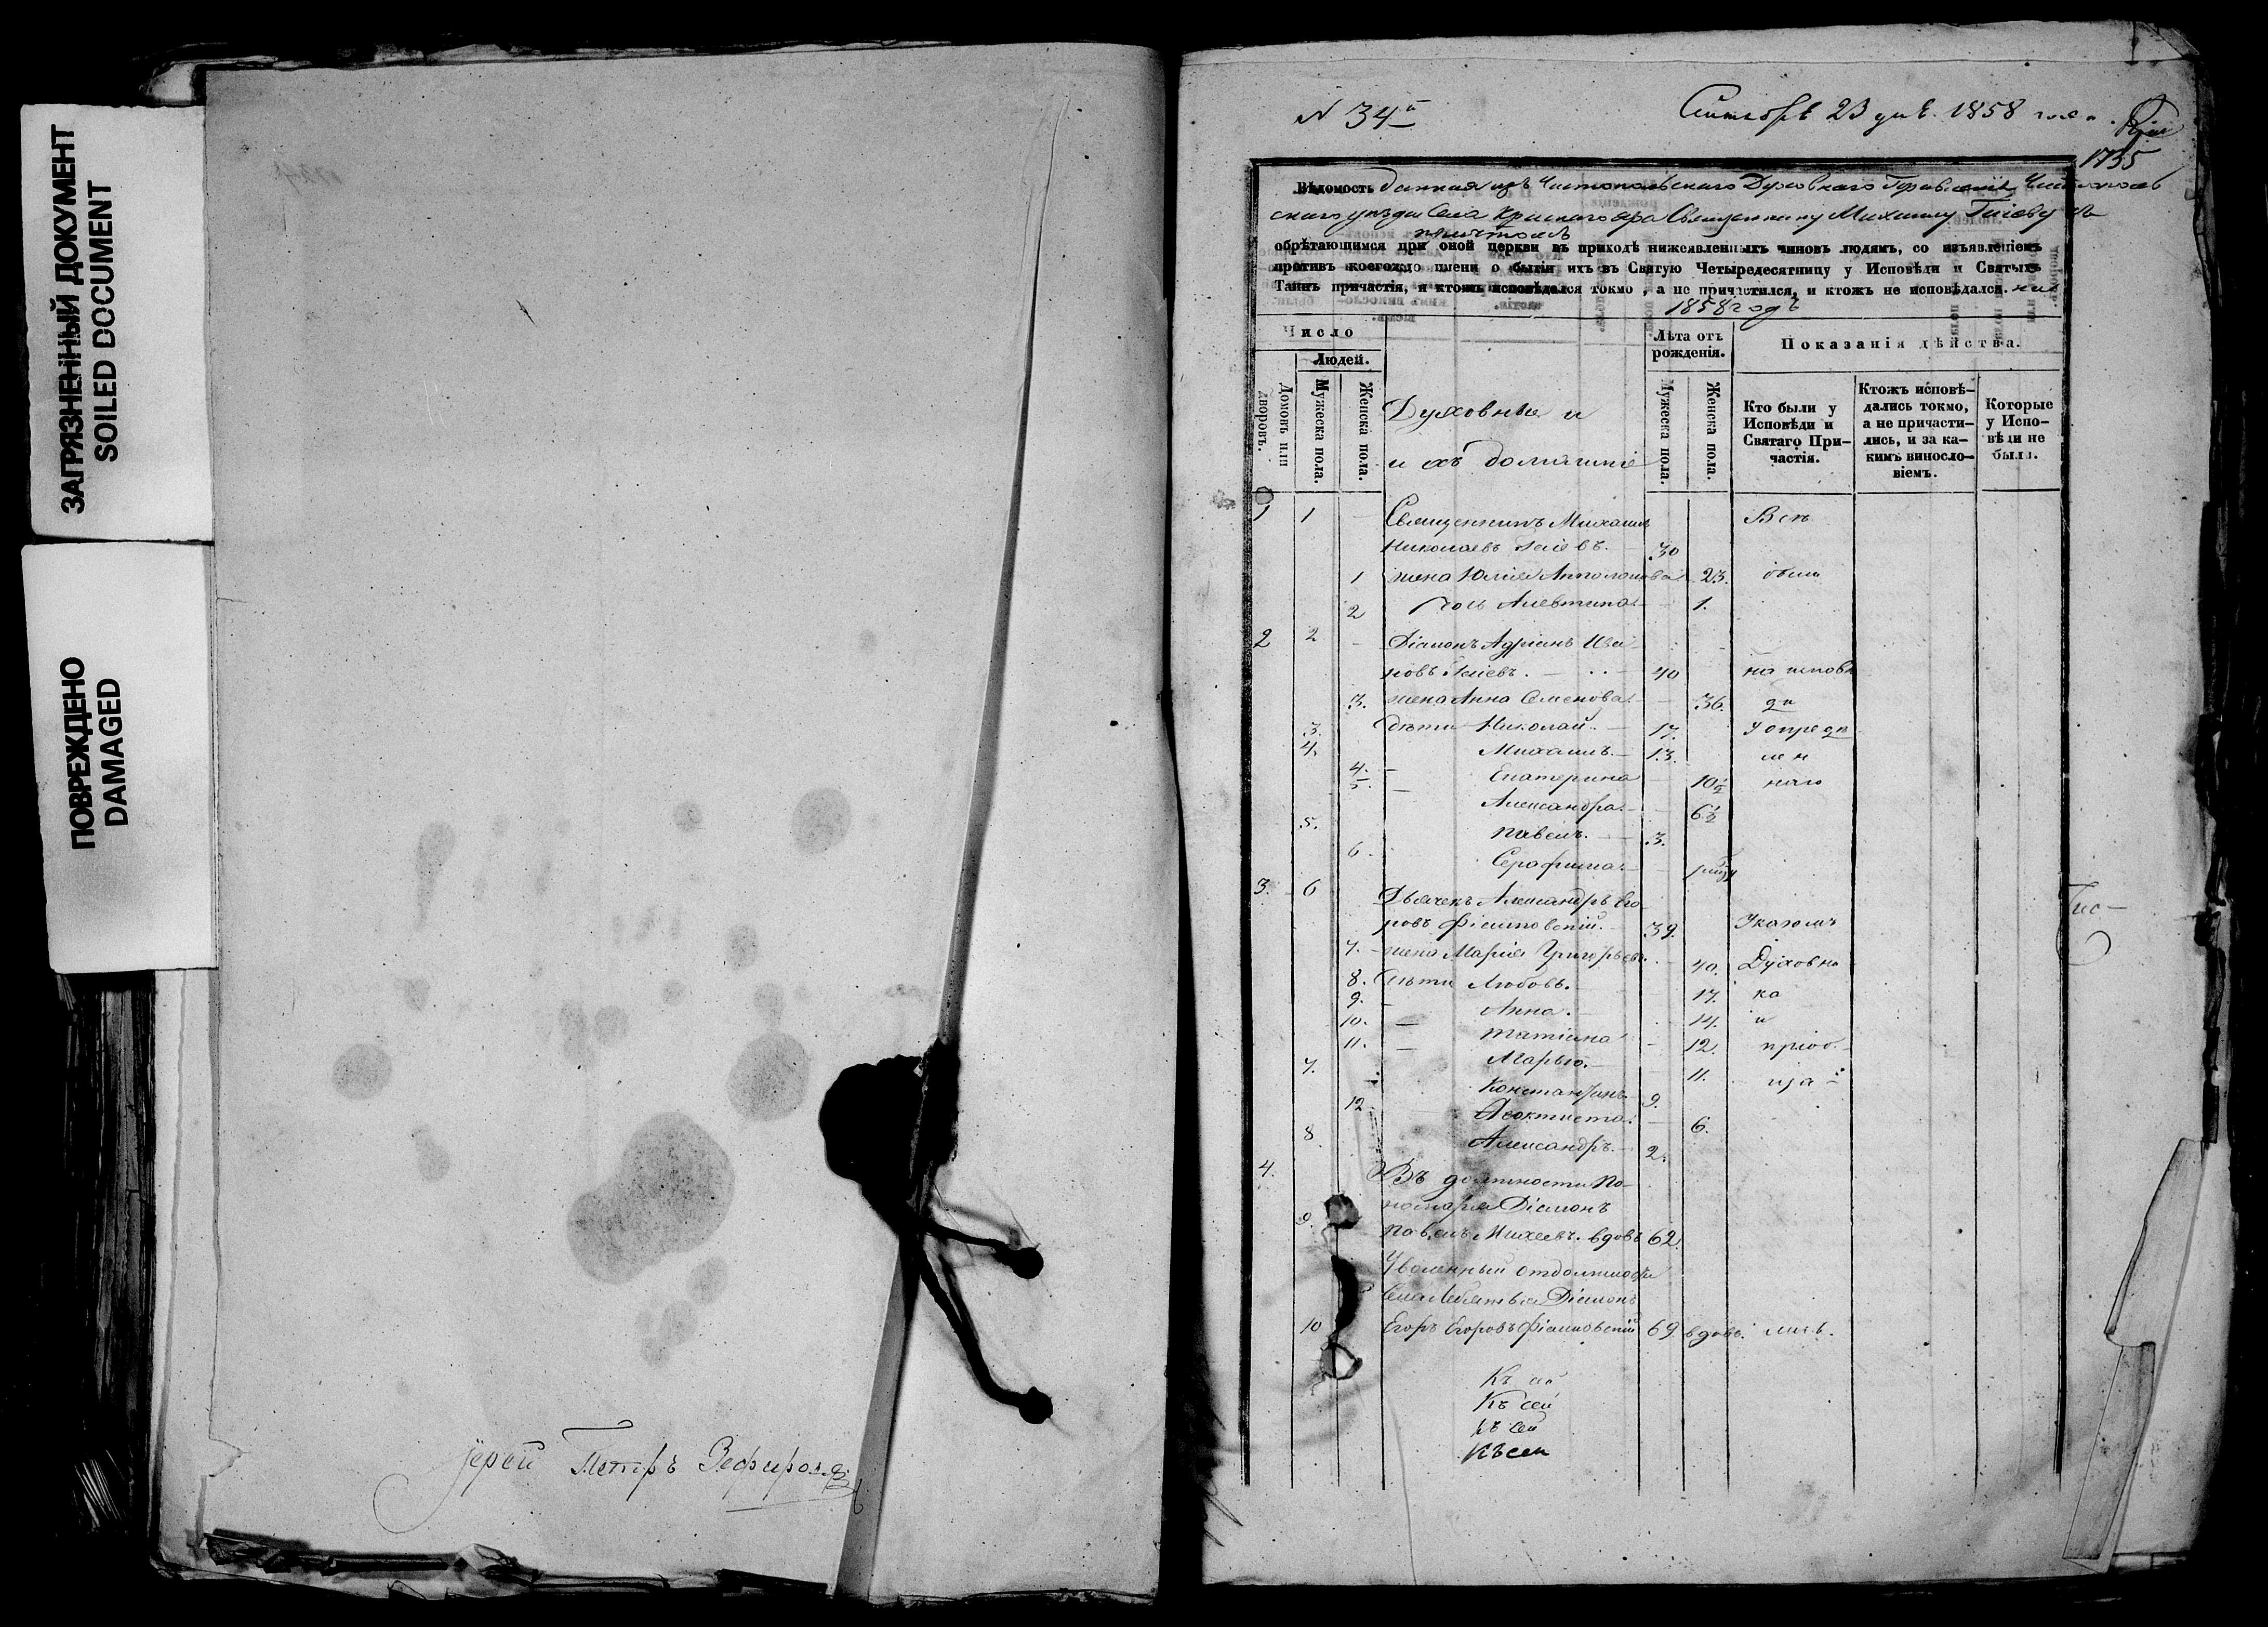 ЗАГРЯЗНЕННЫЙ ДОКУМЕНТ
SOILED DOCUMENT
ПОВРЕЖДЕНО
DAMAGED
Іерей Петръ Зефировъ
N 34й
Сентября 23 дня 1858 года
1735
Вѣдомость данная изъ Чистопольскаго Духовнаго Правленія Чистополь
скаго уѣзда Села Краснаго яра Священнику Михаилу Гисіеву
обрѣтающимся при оной церкви въ приходѣ нижеявленныхъ чиновъ людямъ, со изъявленіемъ
противъ коегождо имени о бытіи ихъ въ Святую Четыредесятницу у Исповѣди и Святыхъ
Таинъ причастія, и ктожъ исповѣдался токмо, а не причастился, и ктожъ не исповѣдался. на
1858 годъ
Число
Лѣта отъ рожденія.
Показанія дѣйства.
Людей.
Домовъ или дворовъ.
Мужеска пола.
Женска пола.
Духовные и
ихъ домашніе
Мужеска пола.
Женска пола.
Кто были у Исповѣди и Святаго При-частія.
Ктожъ исповѣ-дались токмо, а не причасти-лись, и за ка-кимъ винословіемъ.
Которые у Испо-вѣди не были.
1 1 Священникъ Михаилъ Всѣ
Николаевъ 30
1 жена Юлія Апполонова 23. были
2 дочь Алевтина 1.
2 2 Діаконъ Адріанъ Ива
новъ 40 на исповѣ
3. жена Анна Семенова 36. ди
3. дѣти Николай 17. у опредѣ
4. Михаилъ 13. лен
4. Екатерина 10½ наго
5. Александра 6½
5. Павелъ. 3.
6. Серафима
3. 6 Дьячекъ Александръ Его
ровъ 39. Указомъ
7. жена Марія Григорьева 40. Духовни
8. дѣти Любовь. 17. ка
9. Анна. 14. и
10. Татіана 12. пріоб
11. Марья. 11.
7. Константинъ 9.
12 Феоктиста. 6.
8. Александръ. 2.
4. Въ должности По
номаря Діаконъ
9. Павелъ Михеевъ. вдовъ 62.
Уволенный отъ должности
Села Діаконъ
10 Егоръ Егоровъ 69 вдовъ. лись.
Къ сей
Къ сей
къ сей
Къ сей